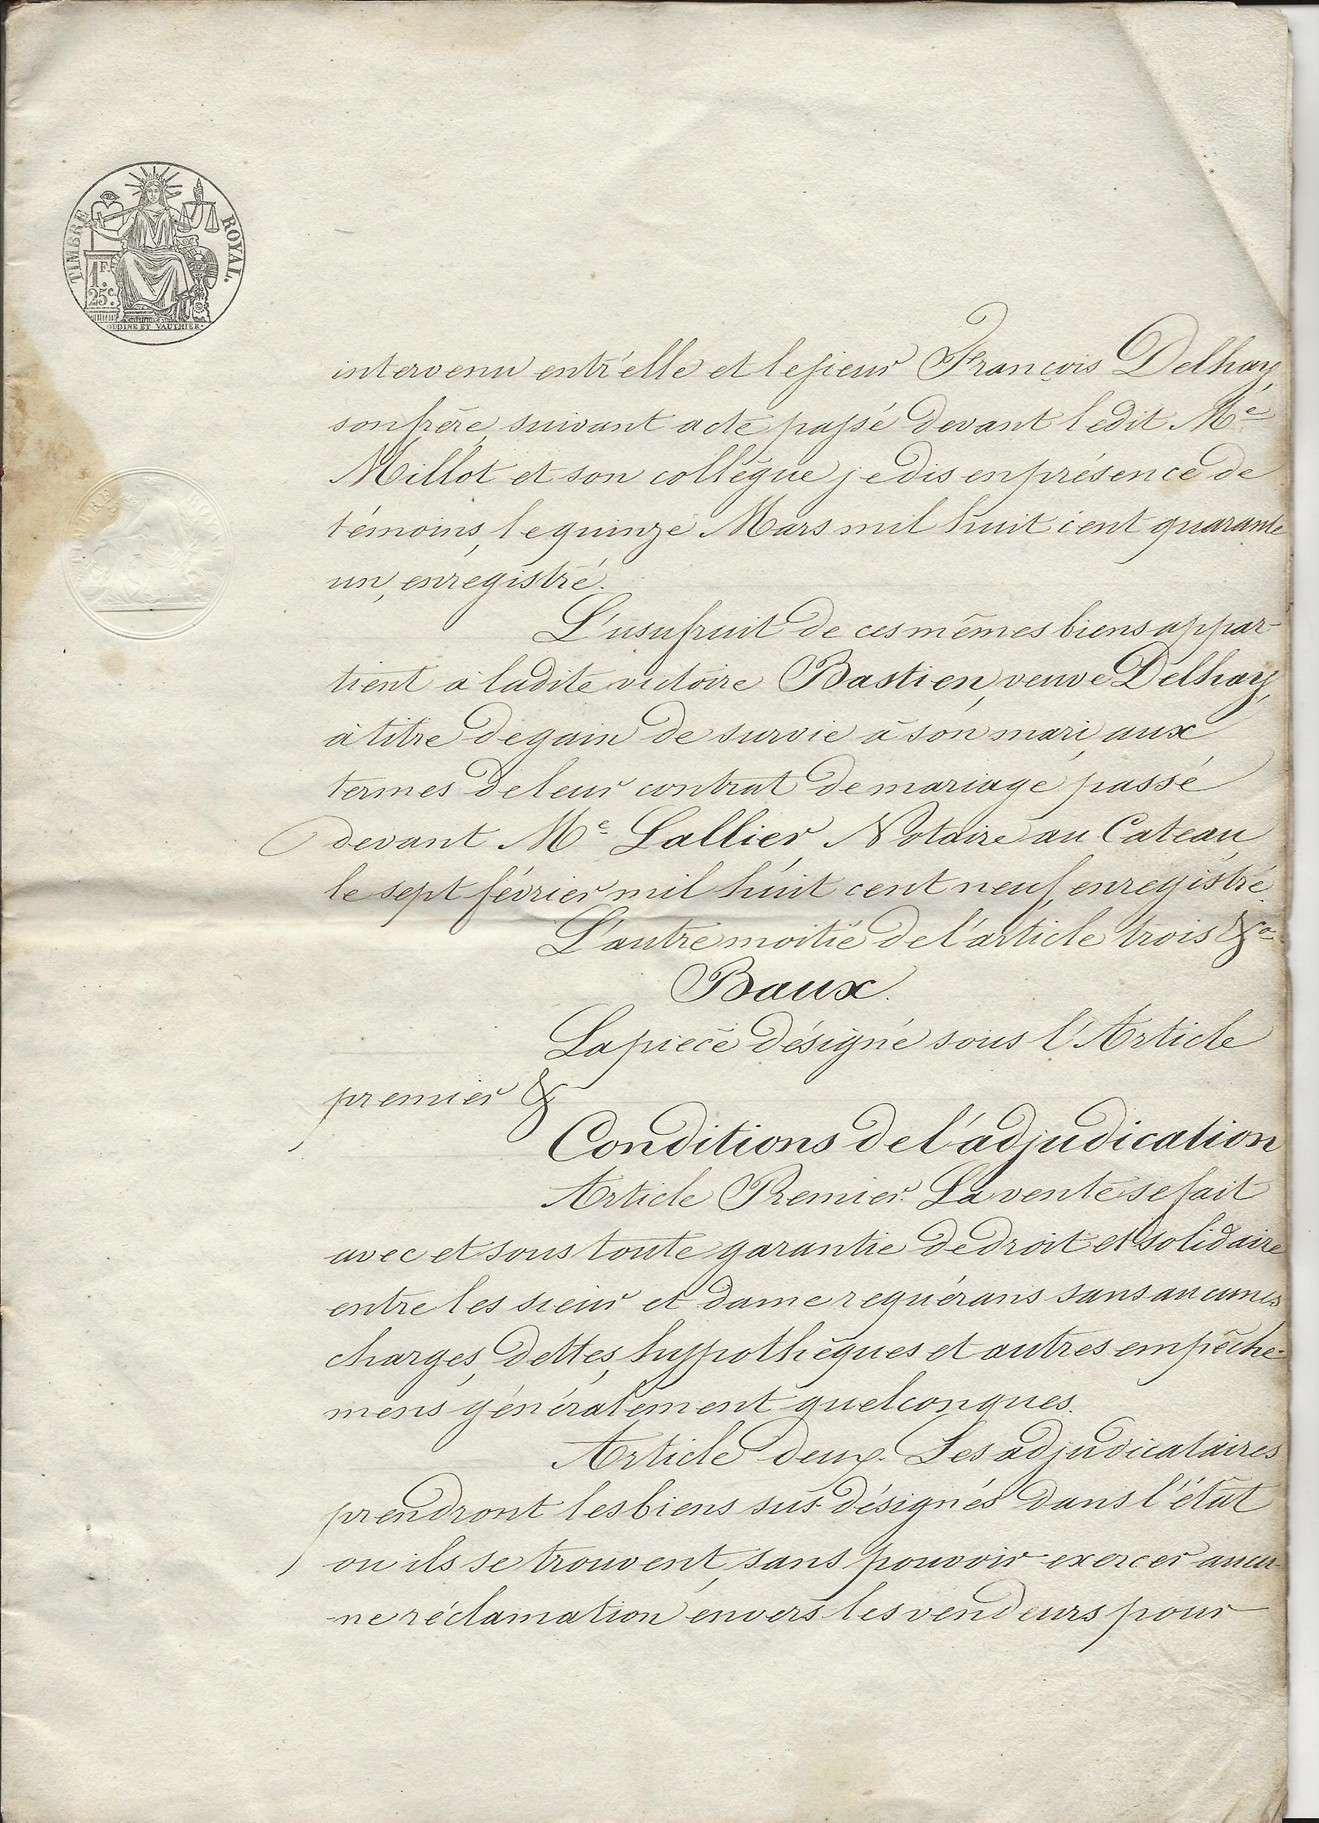 TIMBRE ROYAL.
1F.
25c.
OUDINÉ ET VAUTHIER.
intervenu entr'elle et le sieur François Delhay,
son frère, suivant acte passé devant ledit Me
Millot et son collègue, je dis en présence de
témoins, le quinze Mars mil huit cent quarante
un, enregistré.
L'usufruit de ces mêmes biens appar-
tient à ladite victoire Bastien, veuve Delhay,
à titre de gain de survie à son mari, aux
termes de leur contrat de mariage passé
devant Me Lallier, Notaire au Cateau,
le sept février mil huit cent neuf, enregistré.
L'autre moitié de l'article trois &a
Baux.
La pièce désigné sous l'Article
premier &
Conditions de l'adjudication
Article Premier. La vente se fait
avec et sous toute garantie de droit et solidaire
entre les sieur et dame requérans sans aucunes
charges, dettes, hypothèques et autres empêche-
mens généralement quelconques.
Article deux. Les adjudicataires
prendront les biens sus-désignés dans l'état
ou ils se trouvent, sans pouvoir exercer aucu-
-ne réclamation envers les vendeurs pour